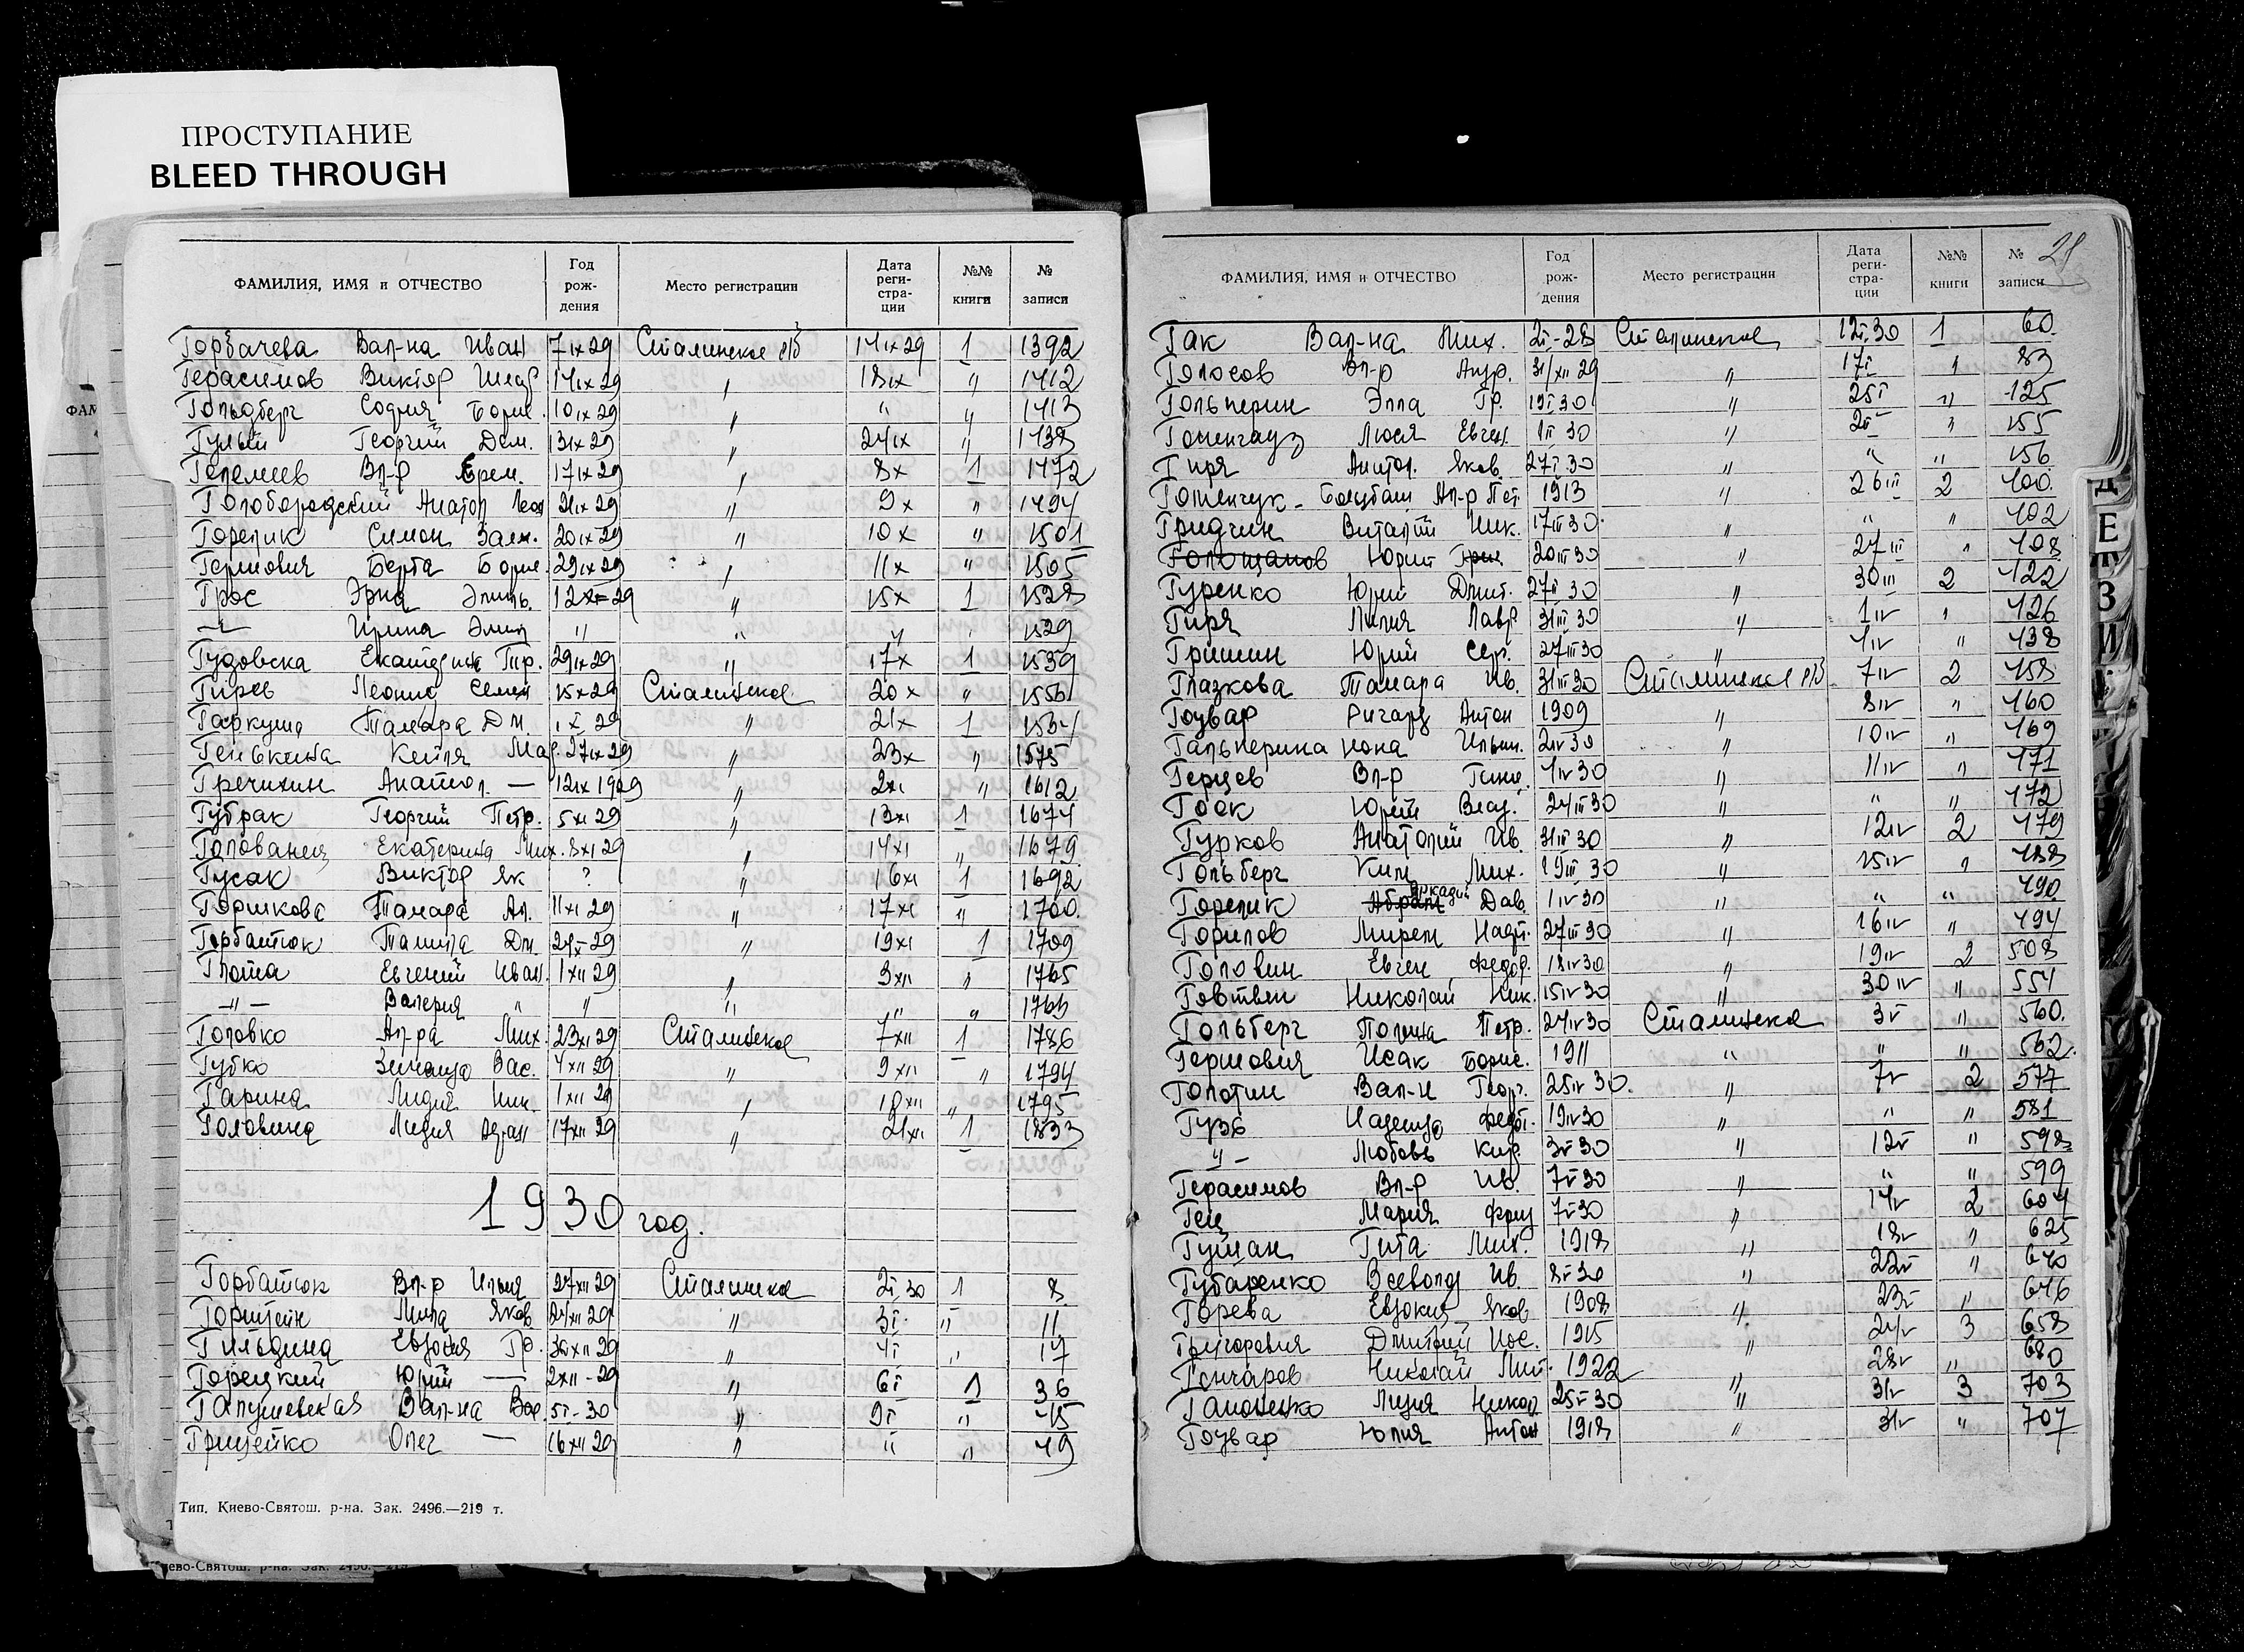 ПРОСТУПАНИЕ
BLEED THROUGH
ФАМИЛИЯ, ИМЯ и ОТЧЕСТВО Год рож- дения Место регистрации Дата реги- стра- ции №№ книги № записи
Горбачева Вал-на Иван 7 IX 29 Сталинское р/б 14 IX 29 1 1392
Герасимов Виктор 14 IX 29 " 18 IX " 1412
Гольдберг София Борис. 10 IX 29 " " " 1413
Гулый Георгий Дем. 13 IX 29 " 24 IX " 1438
Гепемеев Вл-р Ерем. 17 IX 29 " 8 X 1 1472
Голобородский Анатол 21 IX 29 " 9 X " 1494
Горелик Симон Залм. 20 IX 29 " 10 X " 1501
Гершович Берта Борис. 29 IX 29 " 11 X " 1505
Грос Эрна Эмиль. 12 X 29 " 15 X 1 1528
—"— Ирина Эмил " " " " 1529
Гудовска Екатерина Гр. 29 IX 29 " 17 X 1 1539
Гирев Леонид Семен 15 X 29 Сталинское 20 X " 1556
Гаркуша Тамара Дм. 1 X 29 " 21 X 1 1564
Генькина Кейля Мар. 27 IX 29 " 23 X " 1575
Гречихин Анатол. — 12 IX 1929 " 2 XI " 1612
Губрак Георгий Петр. 5 XI 29 " 13 XI 1 1674
Голованец Екатерина Мих. 8 XI 29 " 14 XI " 1679
Гусак Виктор Як ? " 16 XI 1 1692
Горшкова Тамара Ал. 11 XI 29 " 17 XI " 1700
Горбатюк Тамила Дм. 24 X 29 " 19 XI 1 1709
Глота Евгений Иван. 1 XII 29 " 3 XII " 1765
—"— Валерия " " " " " 1766
Головко Ал-ра Мих. 23 XI 29 Сталинское 7 XII 1 1786
Губко Зинаида Вас. 4 XII 29 " 9 XII " 1794
Гарина Лидия Ник. 1 XII 29 " 10 XII " 1795
Головина Лидия 17 XII 29 " 21 XII 1 1833
1930 год.
Горбатюк Вл-р Илья 27 XII 29 Сталинско 2 I 30 1 8
Горштейн Мила Яков 24 XII 29 " 3 I " 11
Гильдина Евдокия Гр. 30 XII 29 " 4 I " 17
Горецкий Юрий — 2 XII - 29 " 6 I 1 36
Галушевская Вал-на 5 I - 30 " 9 I " 45
Грицейко Олег — 16 XII 29 " " " 49
Тип. Киево-Святош. р-на. Зак. 2496.—219 т.
21
ФАМИЛИЯ, ИМЯ и ОТЧЕСТВО Год рож- дения Место регистрации Дата реги- стра- ции №№ книги № записи
Гак Вал-на Мих. 2 I - 28 Сталинское 12 I 30 1 60
Голосов Вл-р Андр. 31/XII 29 " 17 I " 83
Гольперин Элла Гр. 19 I 30 " 25 I " 125
Гоненгауз Люся Евген. 1 II 30 " 2 II " 155
Гиря Анатол. Яков. 27 I 30 " " " 156
Ал-р Пет. 1913 " 26 III 2 400
Гридчин Виталий Ник. 17 III 30 " " " 402
Голощапов Юрий Григ 20 III 30 " 27 III " 408
Гуренко Юрий Дмит. 27 II 30 " 30 III 2 422
Гиря Лилия Лавр 31 III 30 " 1 IV " 426
Гришин Юрий Сер. 27 III 30 " 4 IV " 438
Глазкова Тамара Ив. 31 III 30 Сталинское р/б 7 IV 2 458
Гоувар Ричард Антон 1909 " 8 IV " 460
Гальперина Нона Ильин. 2 IV 30 " 10 IV " 469
Герцев Вл-р 4 IV 30 " 11 IV " 471
Гоок Юрий Влад. 24 III 30 " " " 472
Гурков Анатолий Ив. 31 III 30 " 12 IV 2 479
Гольберг Ким Мих. 19 III 30 " 15 IV " 488
Горелик Абрам Аркадий Дав. 1 IV 30 " " " 490
Горилов Мирем 27 III 30 " 16 IV " 494
Головин Евген Федор. 18 IV 30 " 19 IV 2 508
Говтвен Николай Ник. 15 IV 30 " 30 IV " 554
Гольберг Полина Петр. 24 IV 30 Сталинско 3 V " 560
Гершович Исак Борис. 1911 " " " 562
Голотин Вал-н Георг. 25 IV 30. " 7 V 2 577
Гузь Надежда Федот. 19 IV 30 " " " 581
"— Любовь Кир. 3 V 30 " 12 V " 598
Герасимов Вл-р Ив. 7 V 30 " " " 599
Гец Мария Фриц 7 V 30 " 14 V 2 604
Гутман Гита Мих. 1918 " 18 V " 625
Губаренко Всеволод Ив. 8 V 30 " 22 V " 640
Горева Евдокия Яков 1908 " 23 V " 646
Григорович Дмитрий Иос. 1915 " 24 V 3 658
Гончаров Николай Мит. 1922 " 28 V " 680
Гапоненко Лидия Никол 25 V 30 " 31 V 3 703
Гоувар Юлия Антон 1918 " 31 V " 707